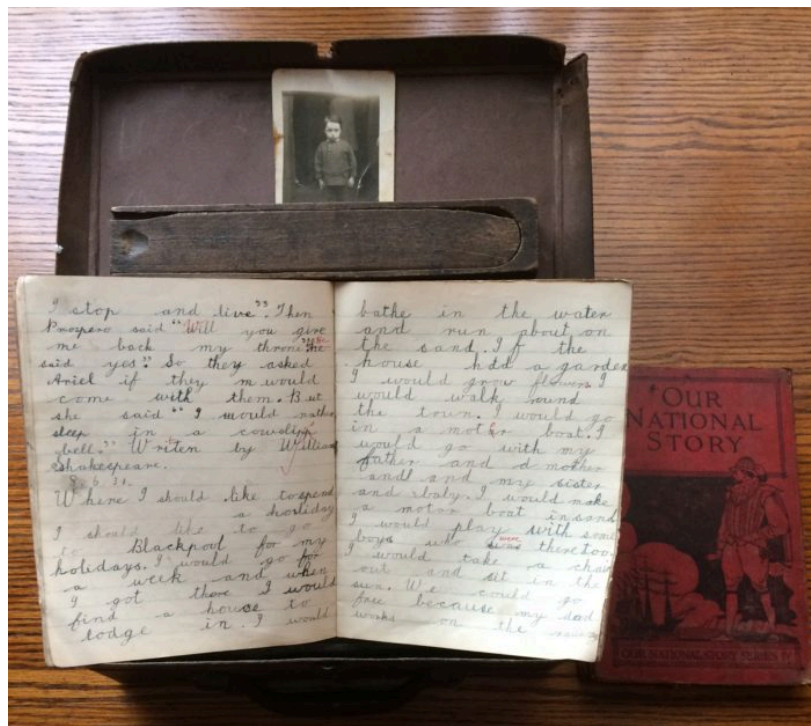 I stop and live". Then
Prospero said "Will you give
me back my throne" "He
said yes." So they asked
Ariel if they m would
come with them. But
she said "I would rather
sleep in a cowslip
bell." Writen by William
Shakespeare.
8. 6. 31.
Where I should like to spend
a holiday
I should like to go
to Blackpool for my
holidays. I would go for
a week and when
I got there I would
find a house to
lodge in. I would
bathe in the water
and run about on
the sand. If the
house had a garden
I would grow flowers. I
would walk round
the town. I would go
in a moter boat. I
would go with my
father and d mother
and and my sister
and baby. I would make
a motor boat in sand
I would play with some
boys who were there too.
I would take a chair
out and sit in the
sun. We could go
free because my dad
works on the
OUR
NATIONAL
STORY
OUR NATIONAL STORY SERIES IV